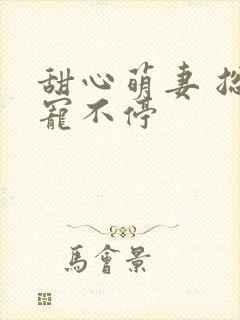 甜心萌妻
寵不停
馬會景